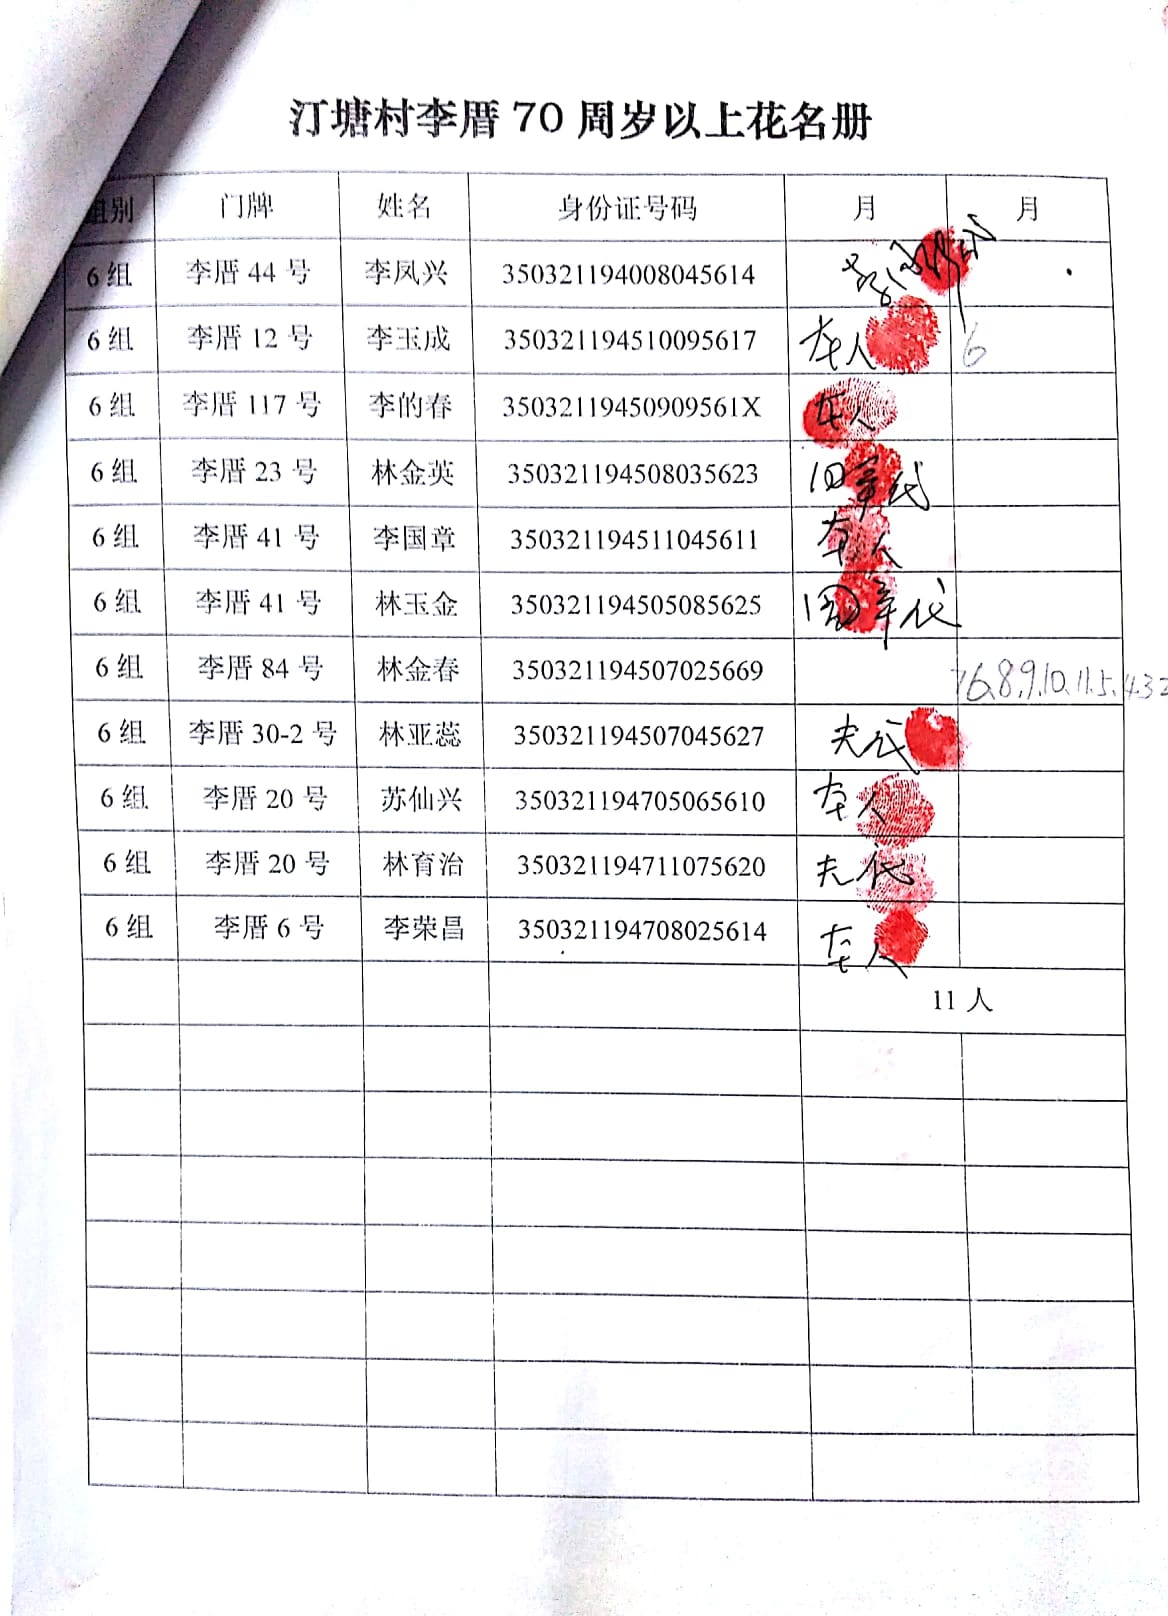 汀塘村李厝 70 周岁以上花名册
组别 门牌 姓名 身份证号码 月 月
6 组 李厝 44 号 李凤兴 350321194008045614
6 组 李厝 12 号 李玉成 350321194510095617 本人 6
6 组 李厝 117 号 李的春 35032119450909561X 本人
6 组 李厝 23 号 林金英 350321194508035623 国章代
6 组 李厝 41 号 李国章 350321194511045611 本人
6 组 李厝 41 号 林玉金 350321194505085625 国章代
6 组 李厝 84 号 林金春 350321194507025669 76.8.9.10.11.5.432
6 组 李厝 30-2 号 林亚蕊 350321194507045627 夫代
6 组 李厝 20 号 苏仙兴 350321194705065610 本人
6 组 李厝 20 号 林育治 350321194711075620 夫代
6 组 李厝 6 号 李荣昌 350321194708025614 本人
11 人